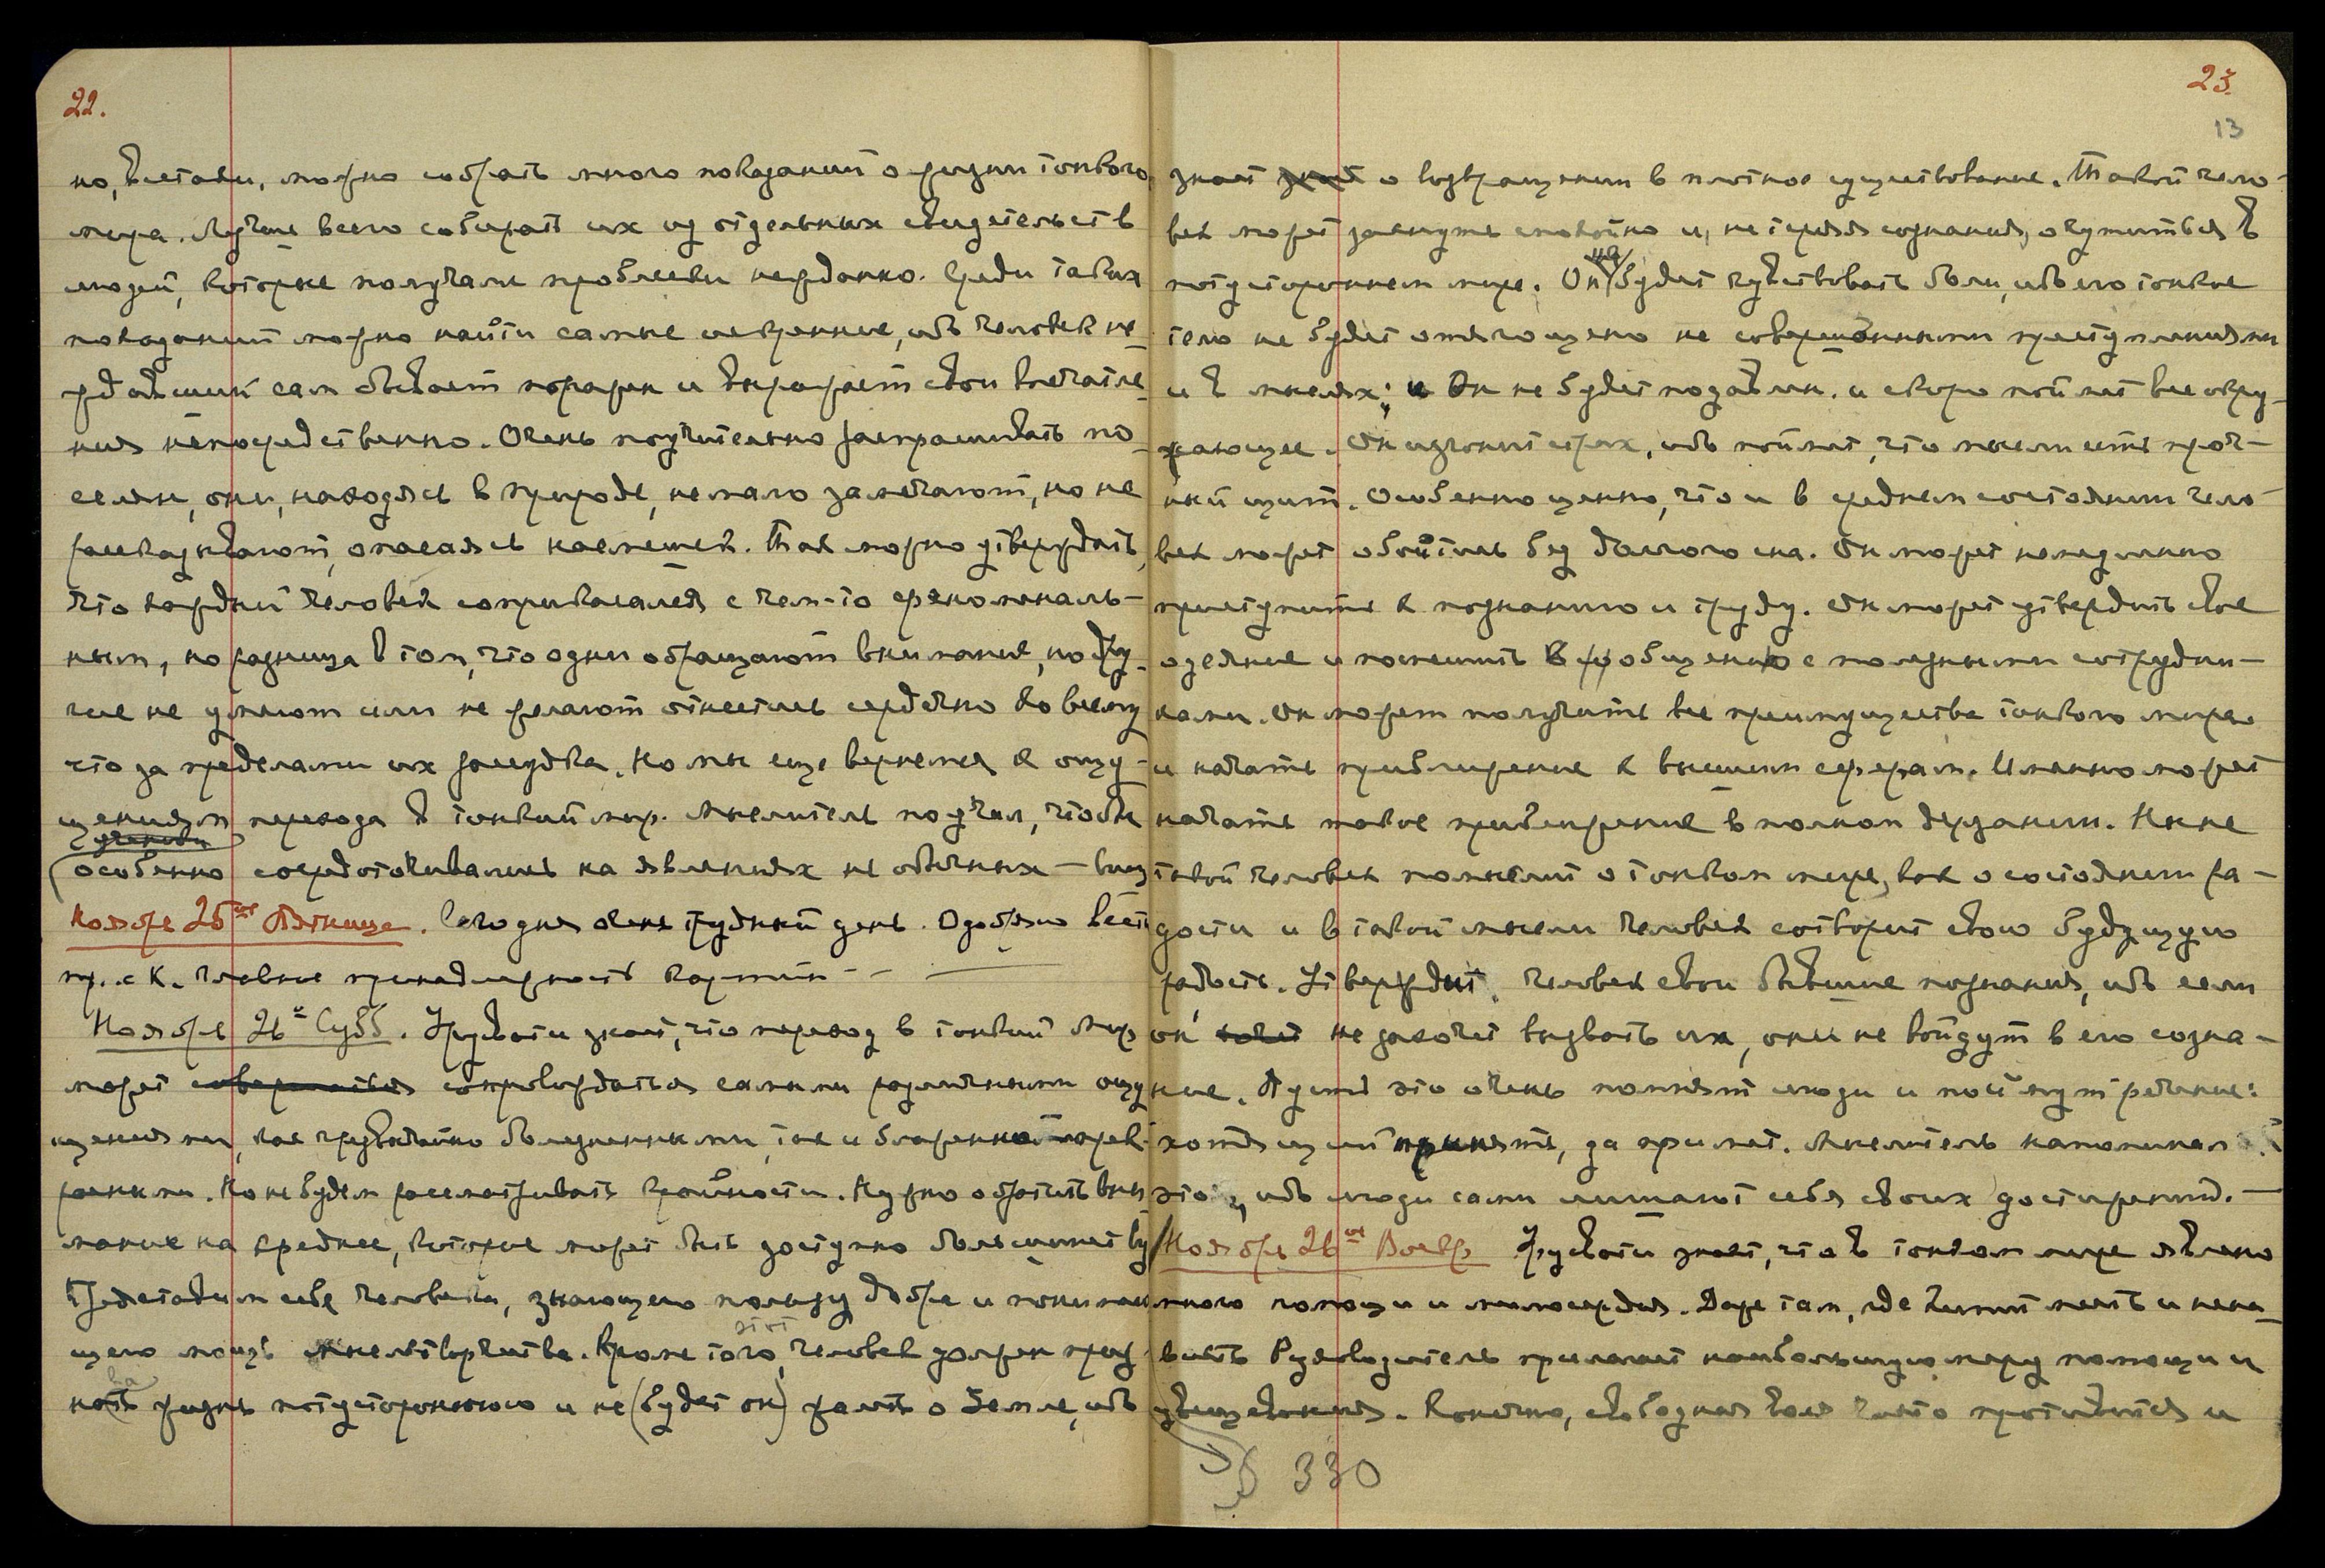 22.
но, кстати, можно собрать много показаний о жизни тонкого
мира. Лучше всего собирать их из отдельных свидетельств
людей, которые получали проблески нежданно. Среди таких
показаний можно найти самые искренние, ибо человек не
ждавший сам бывает поражен и выражает свои впечатле-
ния непосредственно. Очень поучительно расспрашивать по-
селян, они, находясь в природе, немало замечают, но не
рассказывают, опасаясь насмешек. Так можно утверждать,
что каждый человек соприкасался с чем-то феноменаль-
ным, но разница в том, что одни обращают внимание, но дру-
гие не умеют или не желают отнестись сердечно ко всему
что за пределами их рассудка. Но мы еще вернемся к ощу-
щениям перехода в тонкий мир. Мыслитель поучал, чтобы
ученики
особенно сосредоточивались на явлениях не обычных —
Ноябрь 25ое Пятница. Сегодня очень трудный день. Одобряю вести
пр. с К. главное принадлежность картин - -
Ноябрь 26е Субб. Урусвати знает, что переход в тонкий Мир
может совершаться сопровождаться самыми различными ощу
щениями, как чрезвычайно болезненными, так и блаженно
ными. Но не будем рассматривать крайности. Нужно обратить вни
мание на среднее, которое может быть доступно большинству
Представим себе человека, знающего пользу добра и понимаю
щего мощь мыслетворчества. Кроме того, этот человек должен
жизнь потустороннюю и не (будет он) жалеть о Земле, ибо
23.
13
знает знает о возвращении в плотное существование. Такой чело-
век может заснуть спокойно и, не теряя сознания, очутиться в
не
потустороннем мире. Он будет чувствовать боли, ибо его тонкое
тело не будет отягощено не совершенными преступлениями
и в мыслях; и Он не будет подавлен. и скоро поймет все окру-
жающее. Он изгонит страх, ибо поймет, что мысли есть проч-
ный щит. Особенно ценно, что и в среднем состоянии чело-
век может обойтись без долгого сна. Он может немедленно
приступить к познанию и труду. Он может утвердить свое
одеяние и поспешить к общению с полезными сотрудни-
ками. Он может получить все преимущества тонкого мира
и начать приближение к высшим сферам. Именно может
начать такое приближение в полном дерзании. Ныне
такой человек помыслит о тонком мире, как о состоянии ра-
дости и в такой мысли человек сотворит свою будущую
радость. Утвердит, человек свои бывшие познания, ибо если
он хочет не захочет вызвать их, они не войдут в его созна-
ние. Пусть это очень помнят люди и поймут речение:
хотящий принять, да примет. Мыслитель напоминал
это, ибо люди сами лишают себя своих достижений. —
Ноябрь 26ое Воскр. Урусвати знает, что в тонком мире явлено
много помощи и милосердия. Даже там, где кипит месть и нена-
висть Руководитель прилагает наибольшую меру помощи и
увещевания. Конечно, свободная воля часто противится и
§ 330